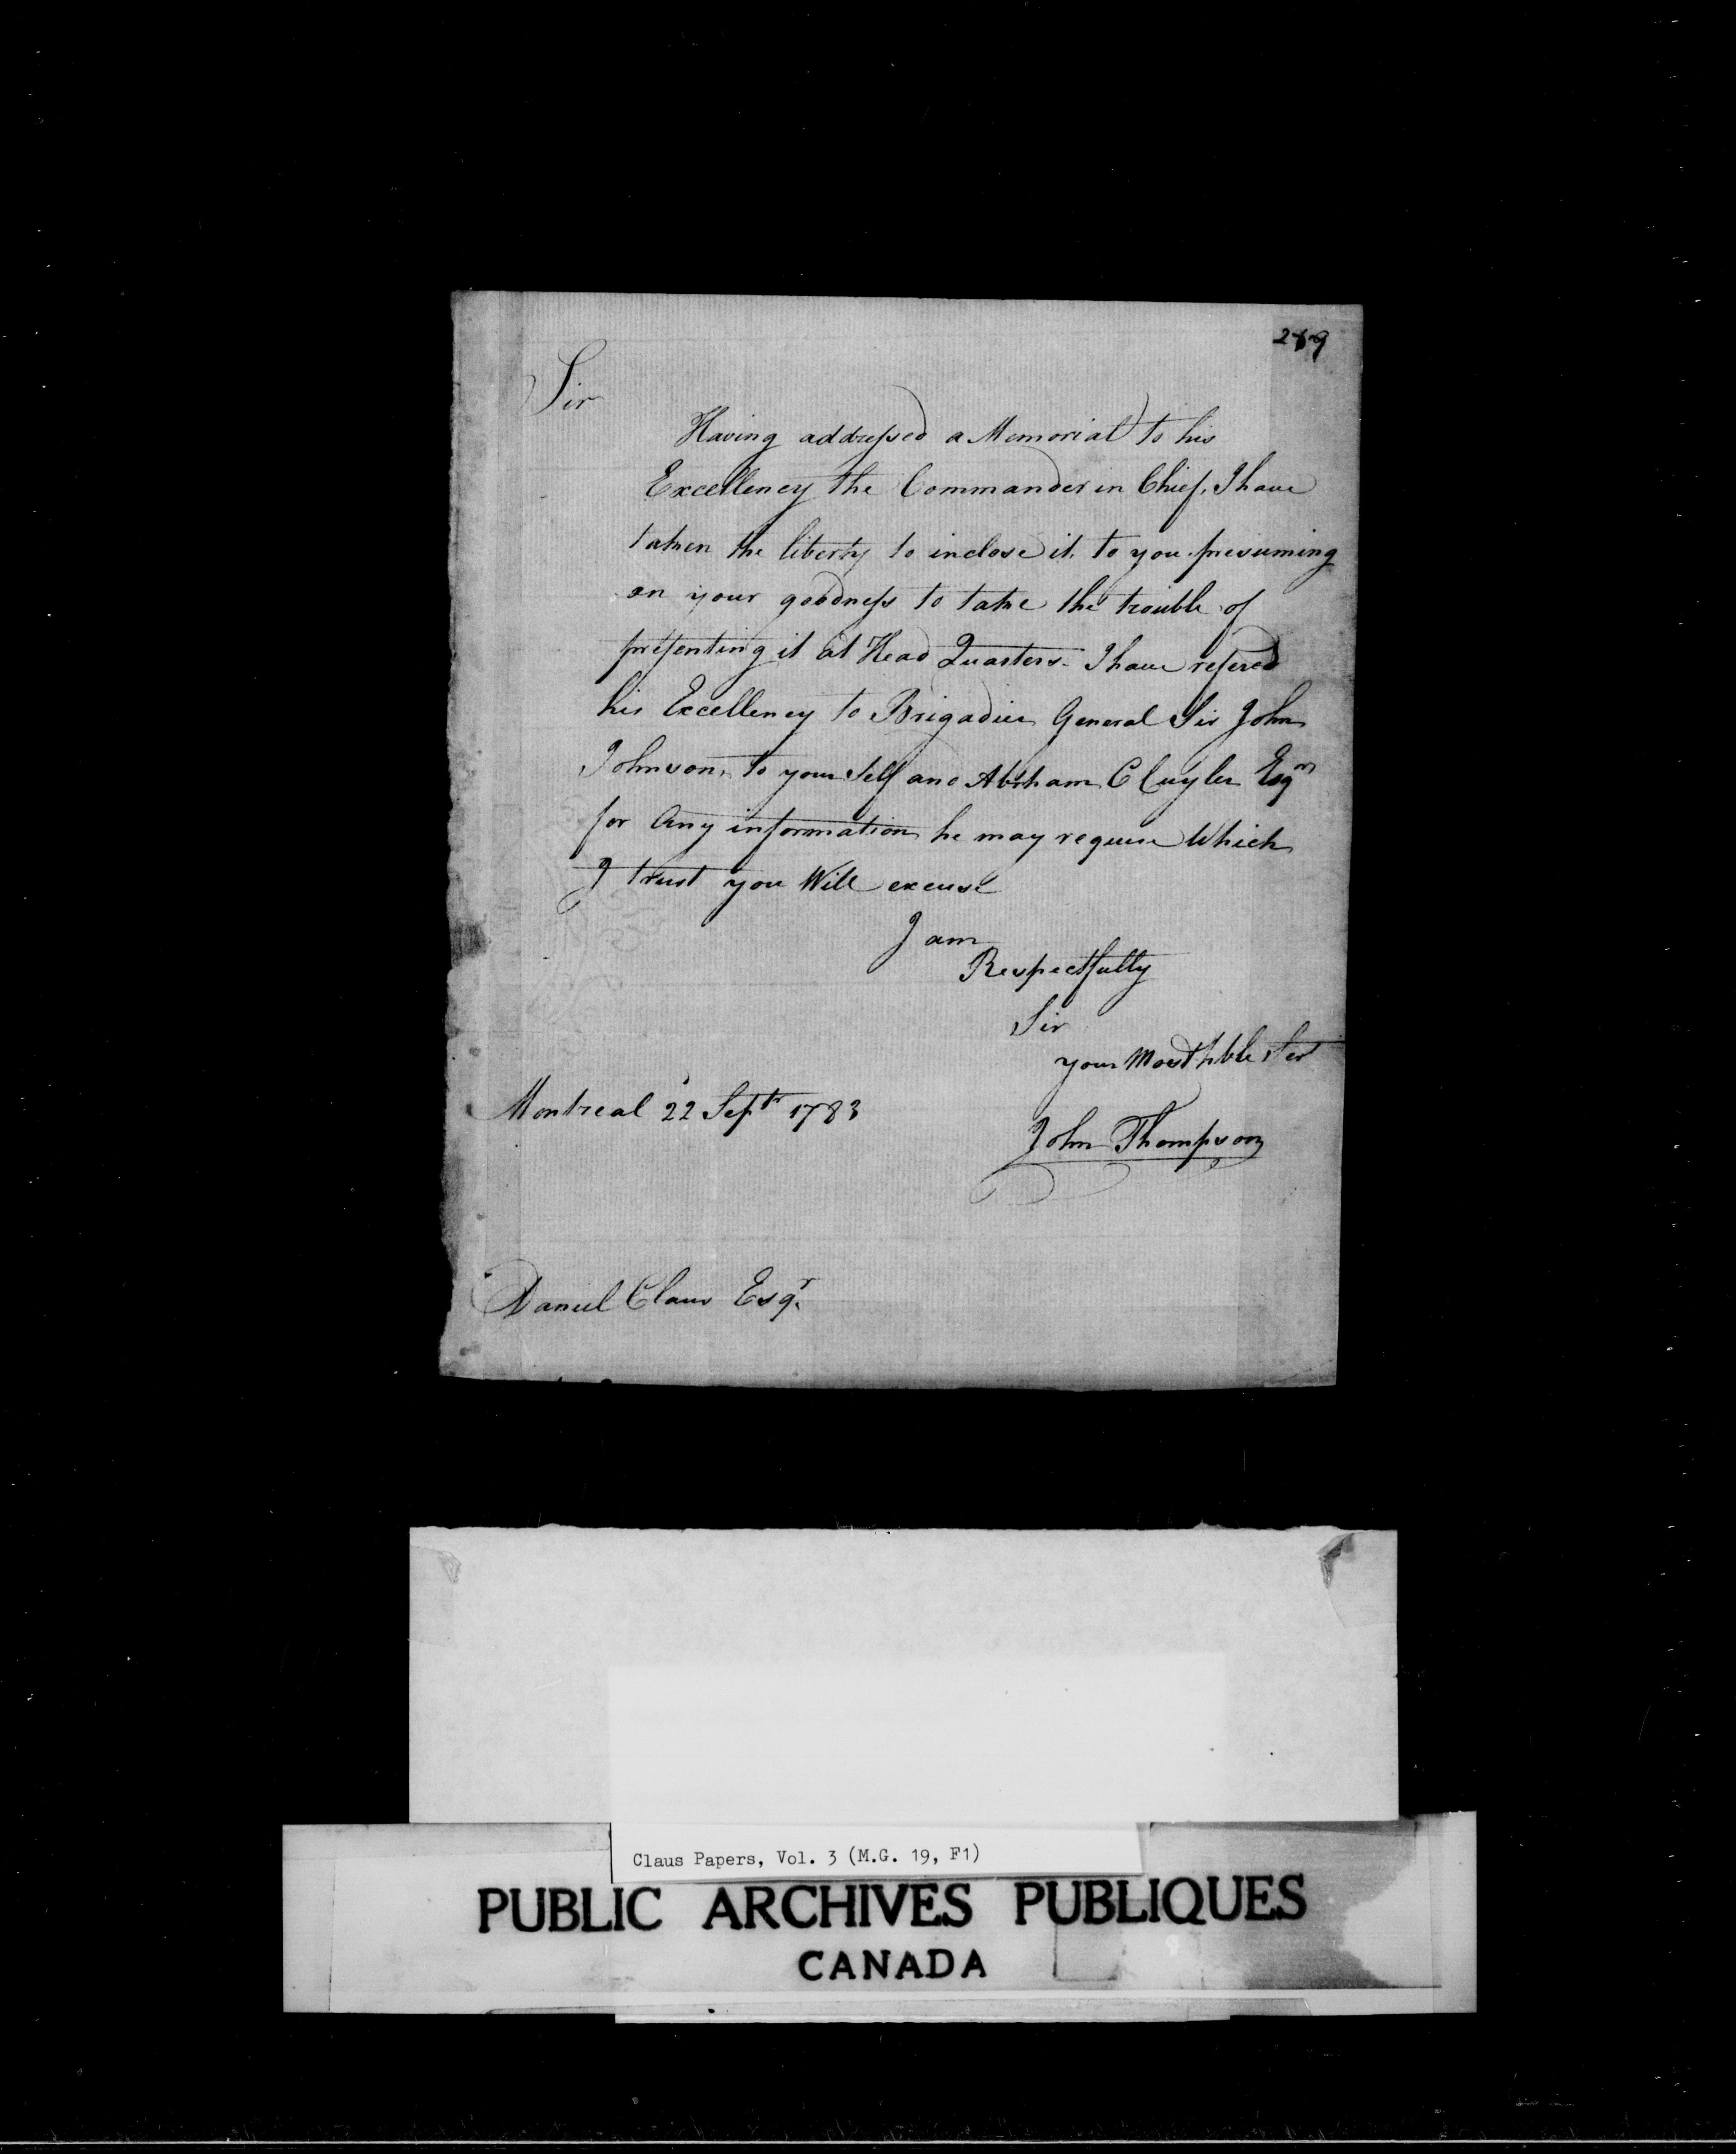 269
Sir
Having addressed a Memorial to his
Excellency the Commander in Chief, I have
taken the liberty to inclose it to you presuming
on your goodness to take the trouble of
presenting it at Head Quarters. I have refered
his Excellency to Brigadier General Sir John
Johnson, to your Self and Abrham C Cuyler Esqrs
for Any information he may require Which
I trust you Will excuse
I am
Respectfully
Sir
your Most hble Sert
Montreal 22 Septr 1783
John Thompson
Daniel Claus Esqr.
Claus Papers, Vol. 3 (M.G. 19, F1)
PUBLIC ARCHIVES PUBLIQUES
CANADA